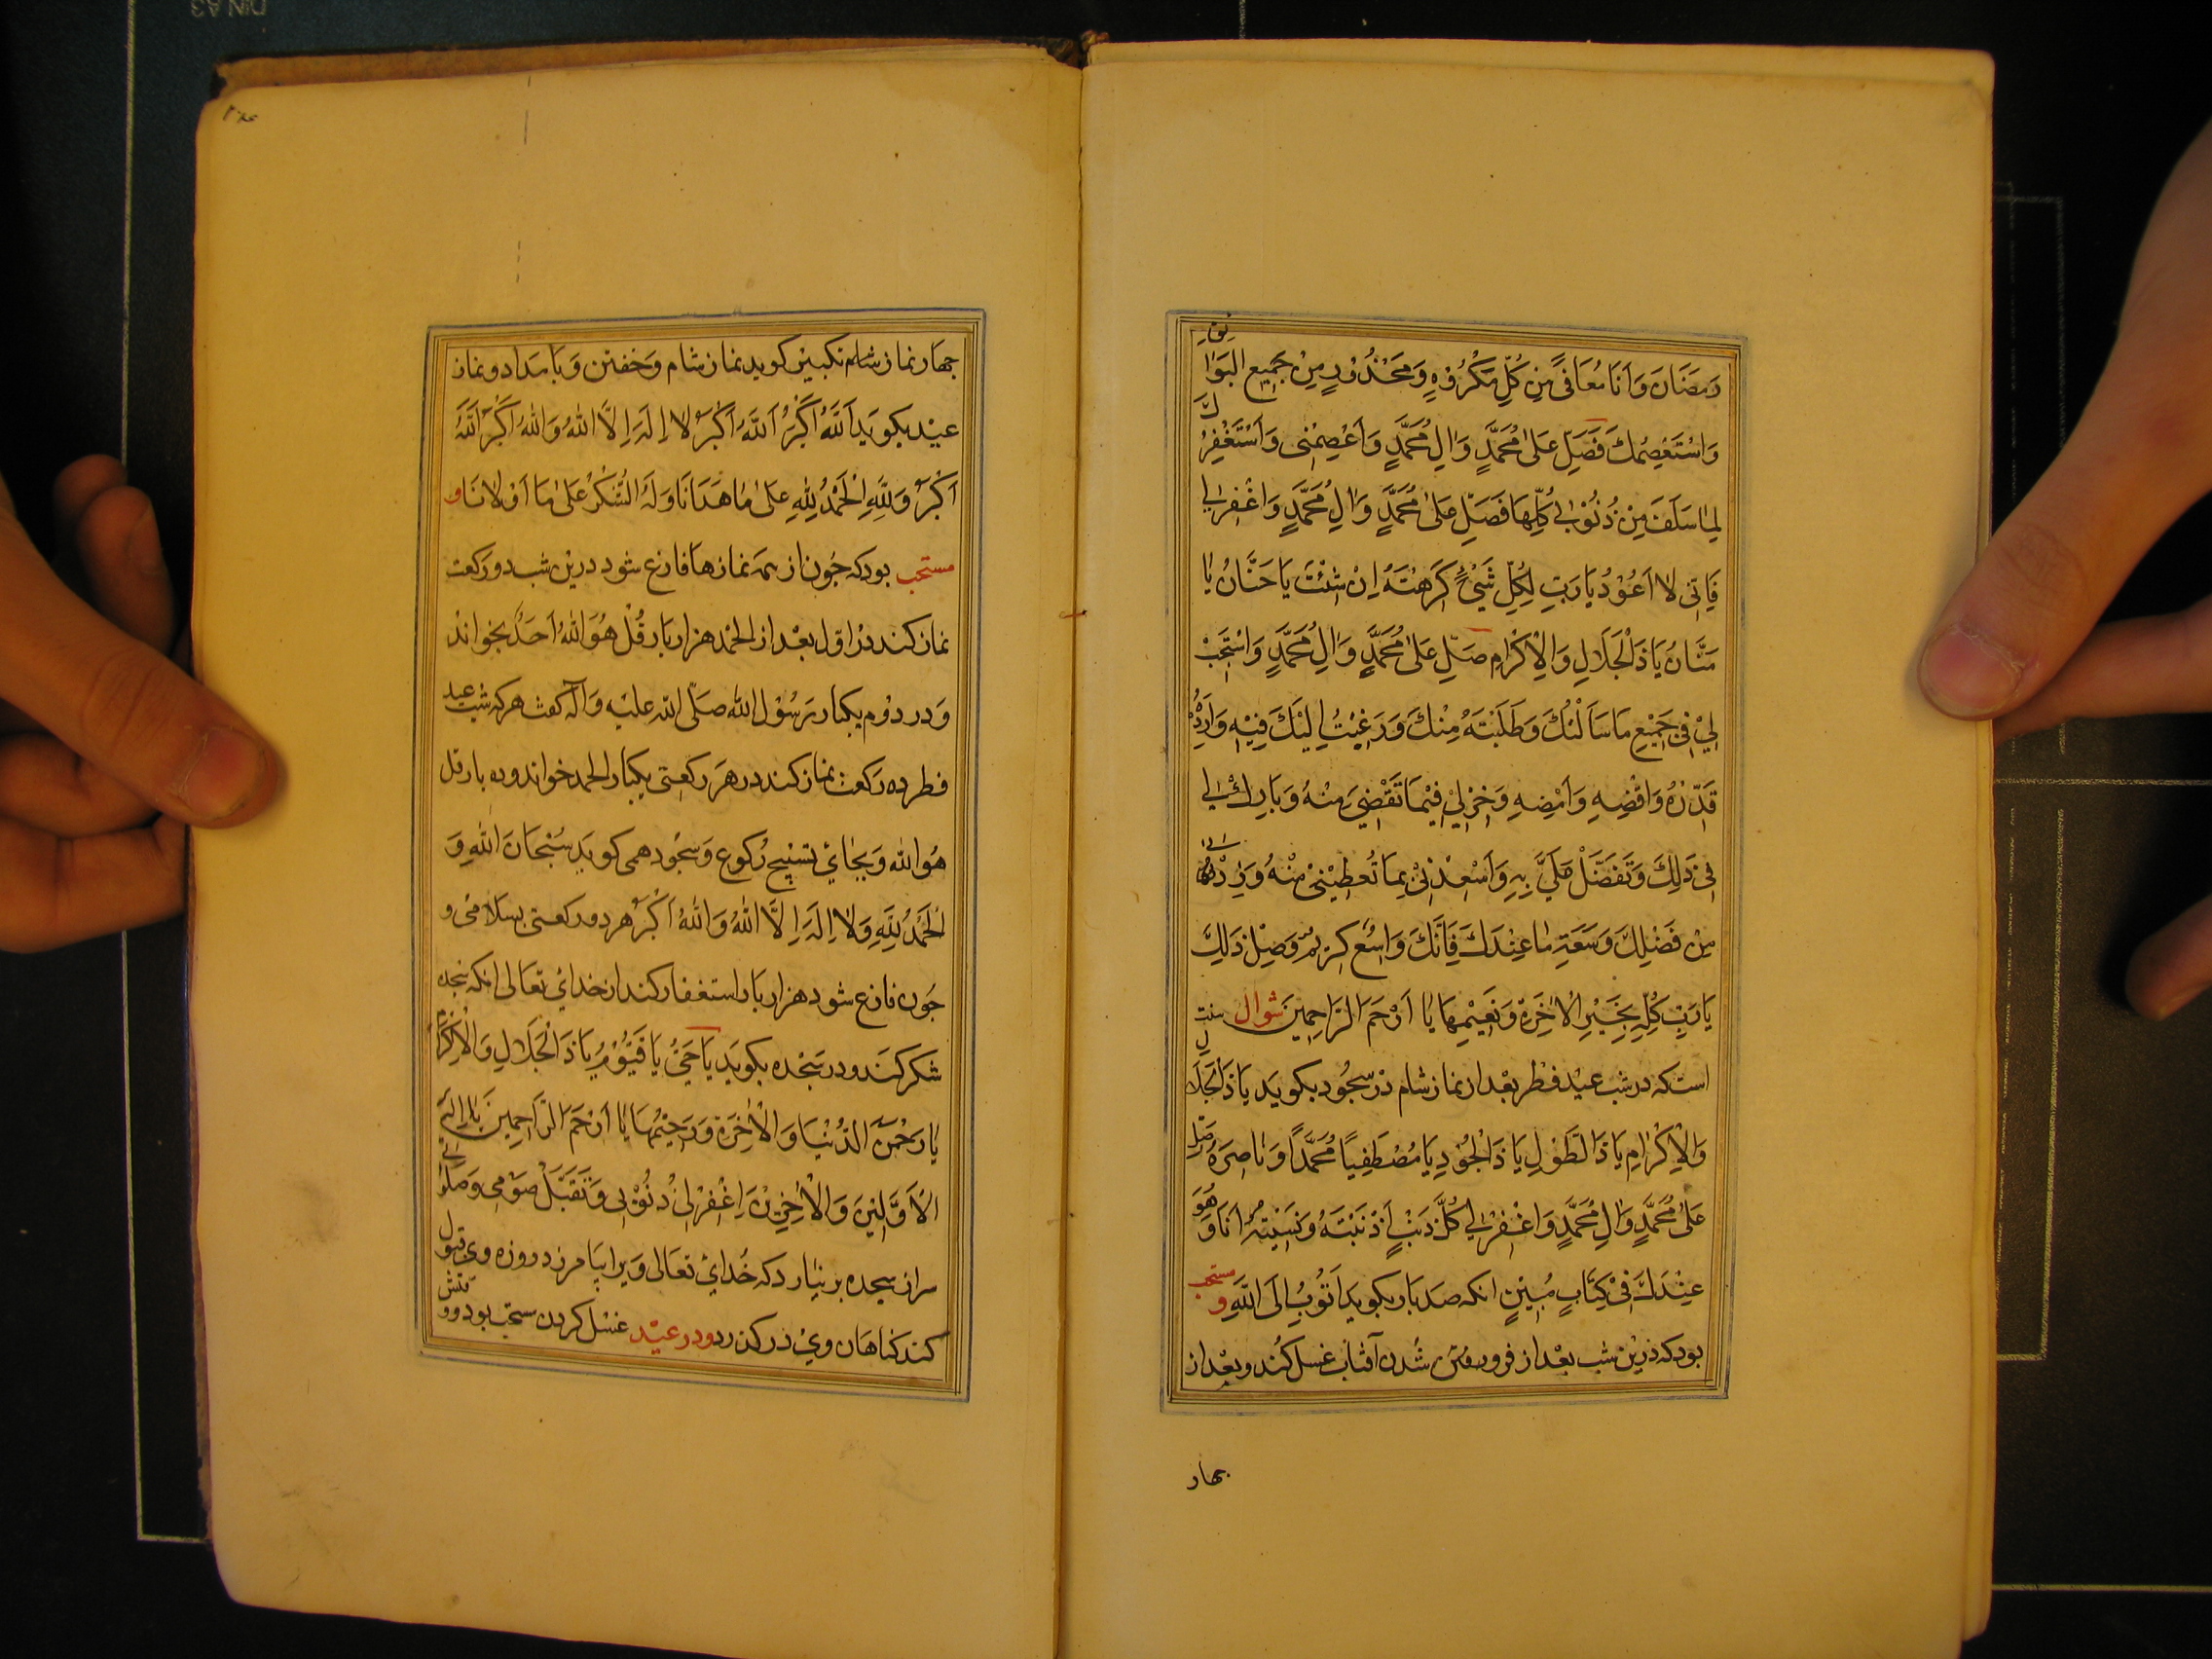 رَمَضَانَ وَاَنَا مُعَافًى مِن كُلِّ مَكْرُوْهٍ وَمَحْذُوْرٍ مِنْ جَمِيعِ البَوَائِقِ
وَاسْتَعْصِمُكَ فَصَلِّ عَلىٰ مُحَمَّدٍ وَاٰلِ مُحَمَّدٍ وَاَعْصِمْنِى وَاَسْتَغْفِرُكَ
لِمَا سَلَفَ مِنْ ذُنُوْبِي كُلِّهَا فَصَلِّ عَلىٰ مُحَمَّدٍ وَاٰلِ مُحَمَّدٍ وَاغْفِرْ لِي
فَاِنّى لا اَعُوْدُ يَا رَبِّ لِكُلِّ شَيْئٍ كَرِهْتَهُ اِنْ شِئْتَ يَا حَنَّانُ يَا
مَنَّانُ يَا ذَالْجَلَالِ وَالْاِكْرَامِ صَلِّ عَلىٰ مُحَمَّدٍ وَاٰلِ مُحَمَّدٍ وَاسْتَجِبْ
لِيْ فِى جَمِيْعِ مَا سَاَلْتُكَ وَطَلَبْتَهُ مِنْكَ وَرَغِبْتُ اِلَيْكَ فِيْهِ وَارِدْهُ
قَدِّرْهُ وَاقْضِهِ وَاَمْضِهِ وَخِرْ لِيْ فِيْمَا تَقْضِيَ مِنْهُ وَبَارِكْ لِي
فِى ذَلِكَ وَتَفَضَّلْ عَلَيَّ بِهِ وَاَسْعِدْنِىْ بِمَا تُعْطِيْنِىْ مِنْهُ وَزِدْنِى
مِنْ فَضْلِكَ وَسَعَةِ مٰا عِنْدَكَ فَاِنَّكَ وَاسِعٌ كَرِيْمٌ وَصِلْ ذَلِكَ
يَا رَبِّ كُلِّهِ بِخَيْرِ الْاٰخِرَةِ وَنَعِيْمِهَا يَا اَرْحَمَ الرَّاحِمِينَ شوال سنت
است که در شب عيد فطر بعد از نماز شام در سجود بکويد يا ذَالْجَلَالِ
وَالْاِكْرَامِ يَا ذَا الطَّوْلِ يَا ذَالْجُوْدِ يَا مُصْطَفِيًا مُحَمَّدًا وَنَاصِرَهُ صَلِّ
عَلىٰ مُحَمَّدٍ وَاٰلِ مُحَمَّدٍ وَاغْفِرْ لِي كُلَّ ذَنْبٍ اَذْنَبْتَهُ وَنَسِيْتُهُ اَنَا وَهُوَ
عِنْدَكَ فِىْ كِتَابٍ مُبِيْنٍ انکه صد بار بکويد اَتُوبُ اِلَى اللّٰهِ و مستحب
بود که درين شب بعد از فرو رفتن شدن آفتاب غسل کند و بعد از
جهار
جهار نماز شام تکبير کويد نماز شام و خفتن و بامداد و نماز
عيد بکويد اَللّٰهُ اَكْبَرُ اَللّٰهُ اَكْبَرُ لا اِلَهَ اِلَّا اللّٰهُ وَاللّٰهُ اَكْبَرُ اَللّٰهُ
اَكْبَرُ وَلِلّٰهِ الْحَمْدُ لِلّٰهِ عَلىٰ مٰا هَدَانَا وَلَهُ الشُّكْرُ عَلىٰ مَا اَوْلَانَا و
مستحب بود که جون از همه نمازها فارغ شود درين شب دو رکعت
نماز کند در اول بعد از الحمد هزار بار قُلْ هُوَ اللّٰهُ اَحَدٌ بخواند
و در دوم يکبار رسول الله صلّى الله عليه وآله کفت هر که شب عيد
فطر ده رکعت نماز کند در هر رکعتى يکبار الحمد خواند و ده بار قل
هو الله و بجاى تسبيح رکوع و سجود همى کويد سُبْحَانَ اللّٰهِ وَ
الْحَمْدُ لِلّٰهِ وَلا اِلَهَ اِلَّا اللّٰهُ وَاللّٰهُ اَكْبَرُ هر دو رکعتى بسلامى و
جون فارغ شود هزار بار استغفار کند از خداى تعالى انکه سجده
شکر کند و در سجده بکويد يَا حَيُّ يَا قَيُّوْمُ يَا ذَالْجَلَالِ وَالْاِكْرَامِ
يٰا رَحْمٰنَ الدُّنْيَا وَالْاٰخِرَةِ وَرَحِيْمَهُمَا يَا اَرْحَمَ الرَّاحِمِينَ يَا اِلٰهَ
الْاَوَّلِيْنَ وَالْاٰخِرِيْنَ اِغْفِرْ لِىْ ذُنُوْبِى وَتَقَبَّلْ صَوْمِى وَصَلٰوتِى
سر از سجده بر نيارد که خداى تعالى ويرا بيامرزد و روزه وى قبول
کند کناهان وى در کذرد و در عيد غسل کردن ستحب بود و وقتش